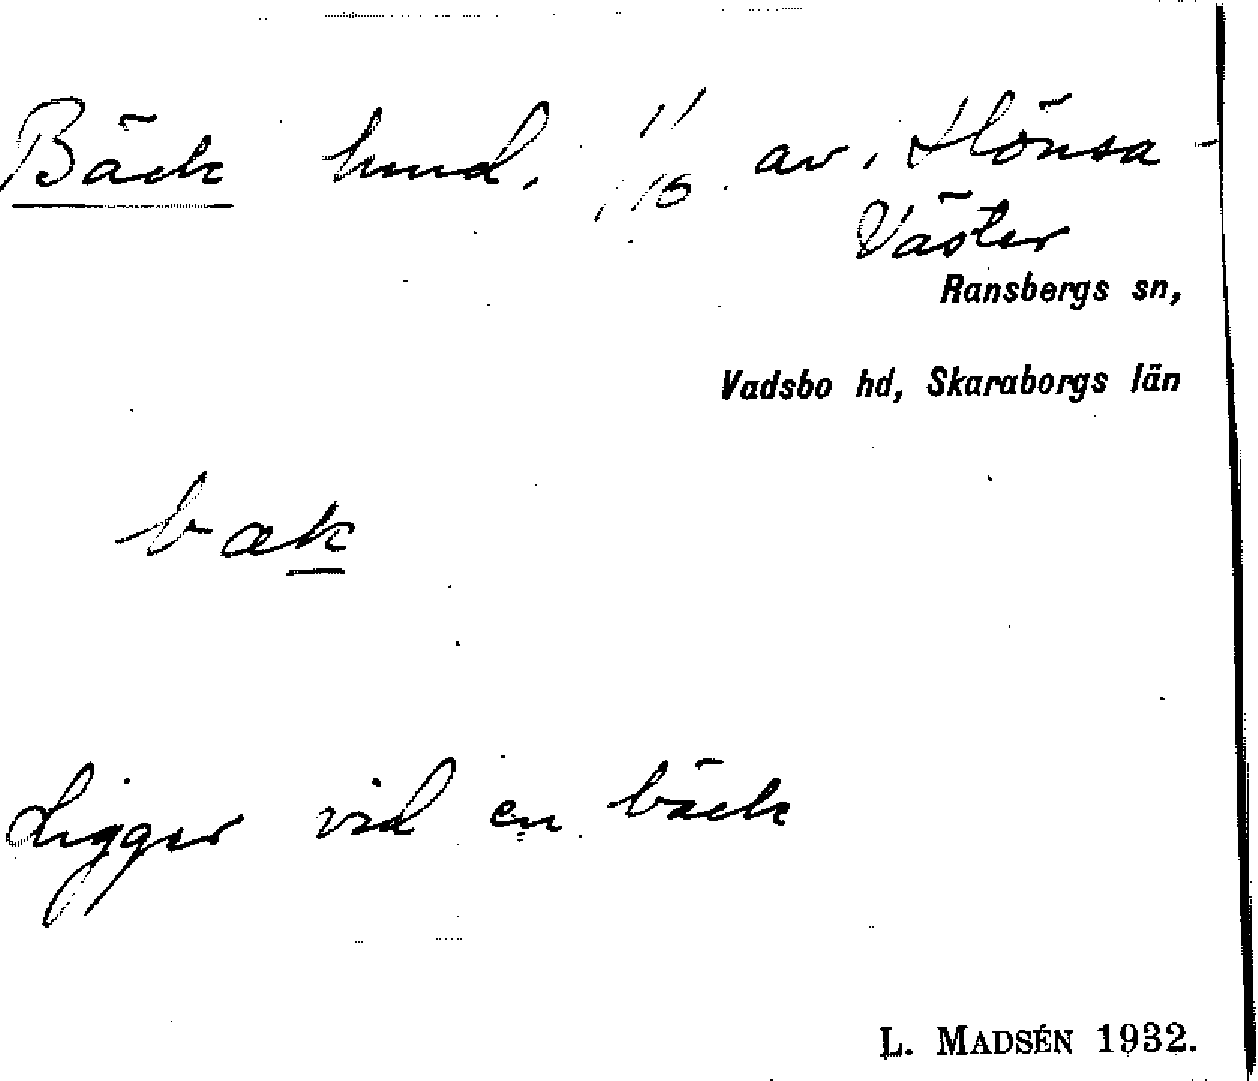 Bäck hmd. 1/16 av. Hönsa-
Väster
Ransbergs sn,
Vadsbo hd, Skaraborgs län
bæk
Ligger vid en bäck
L. MADSÉN 1932.